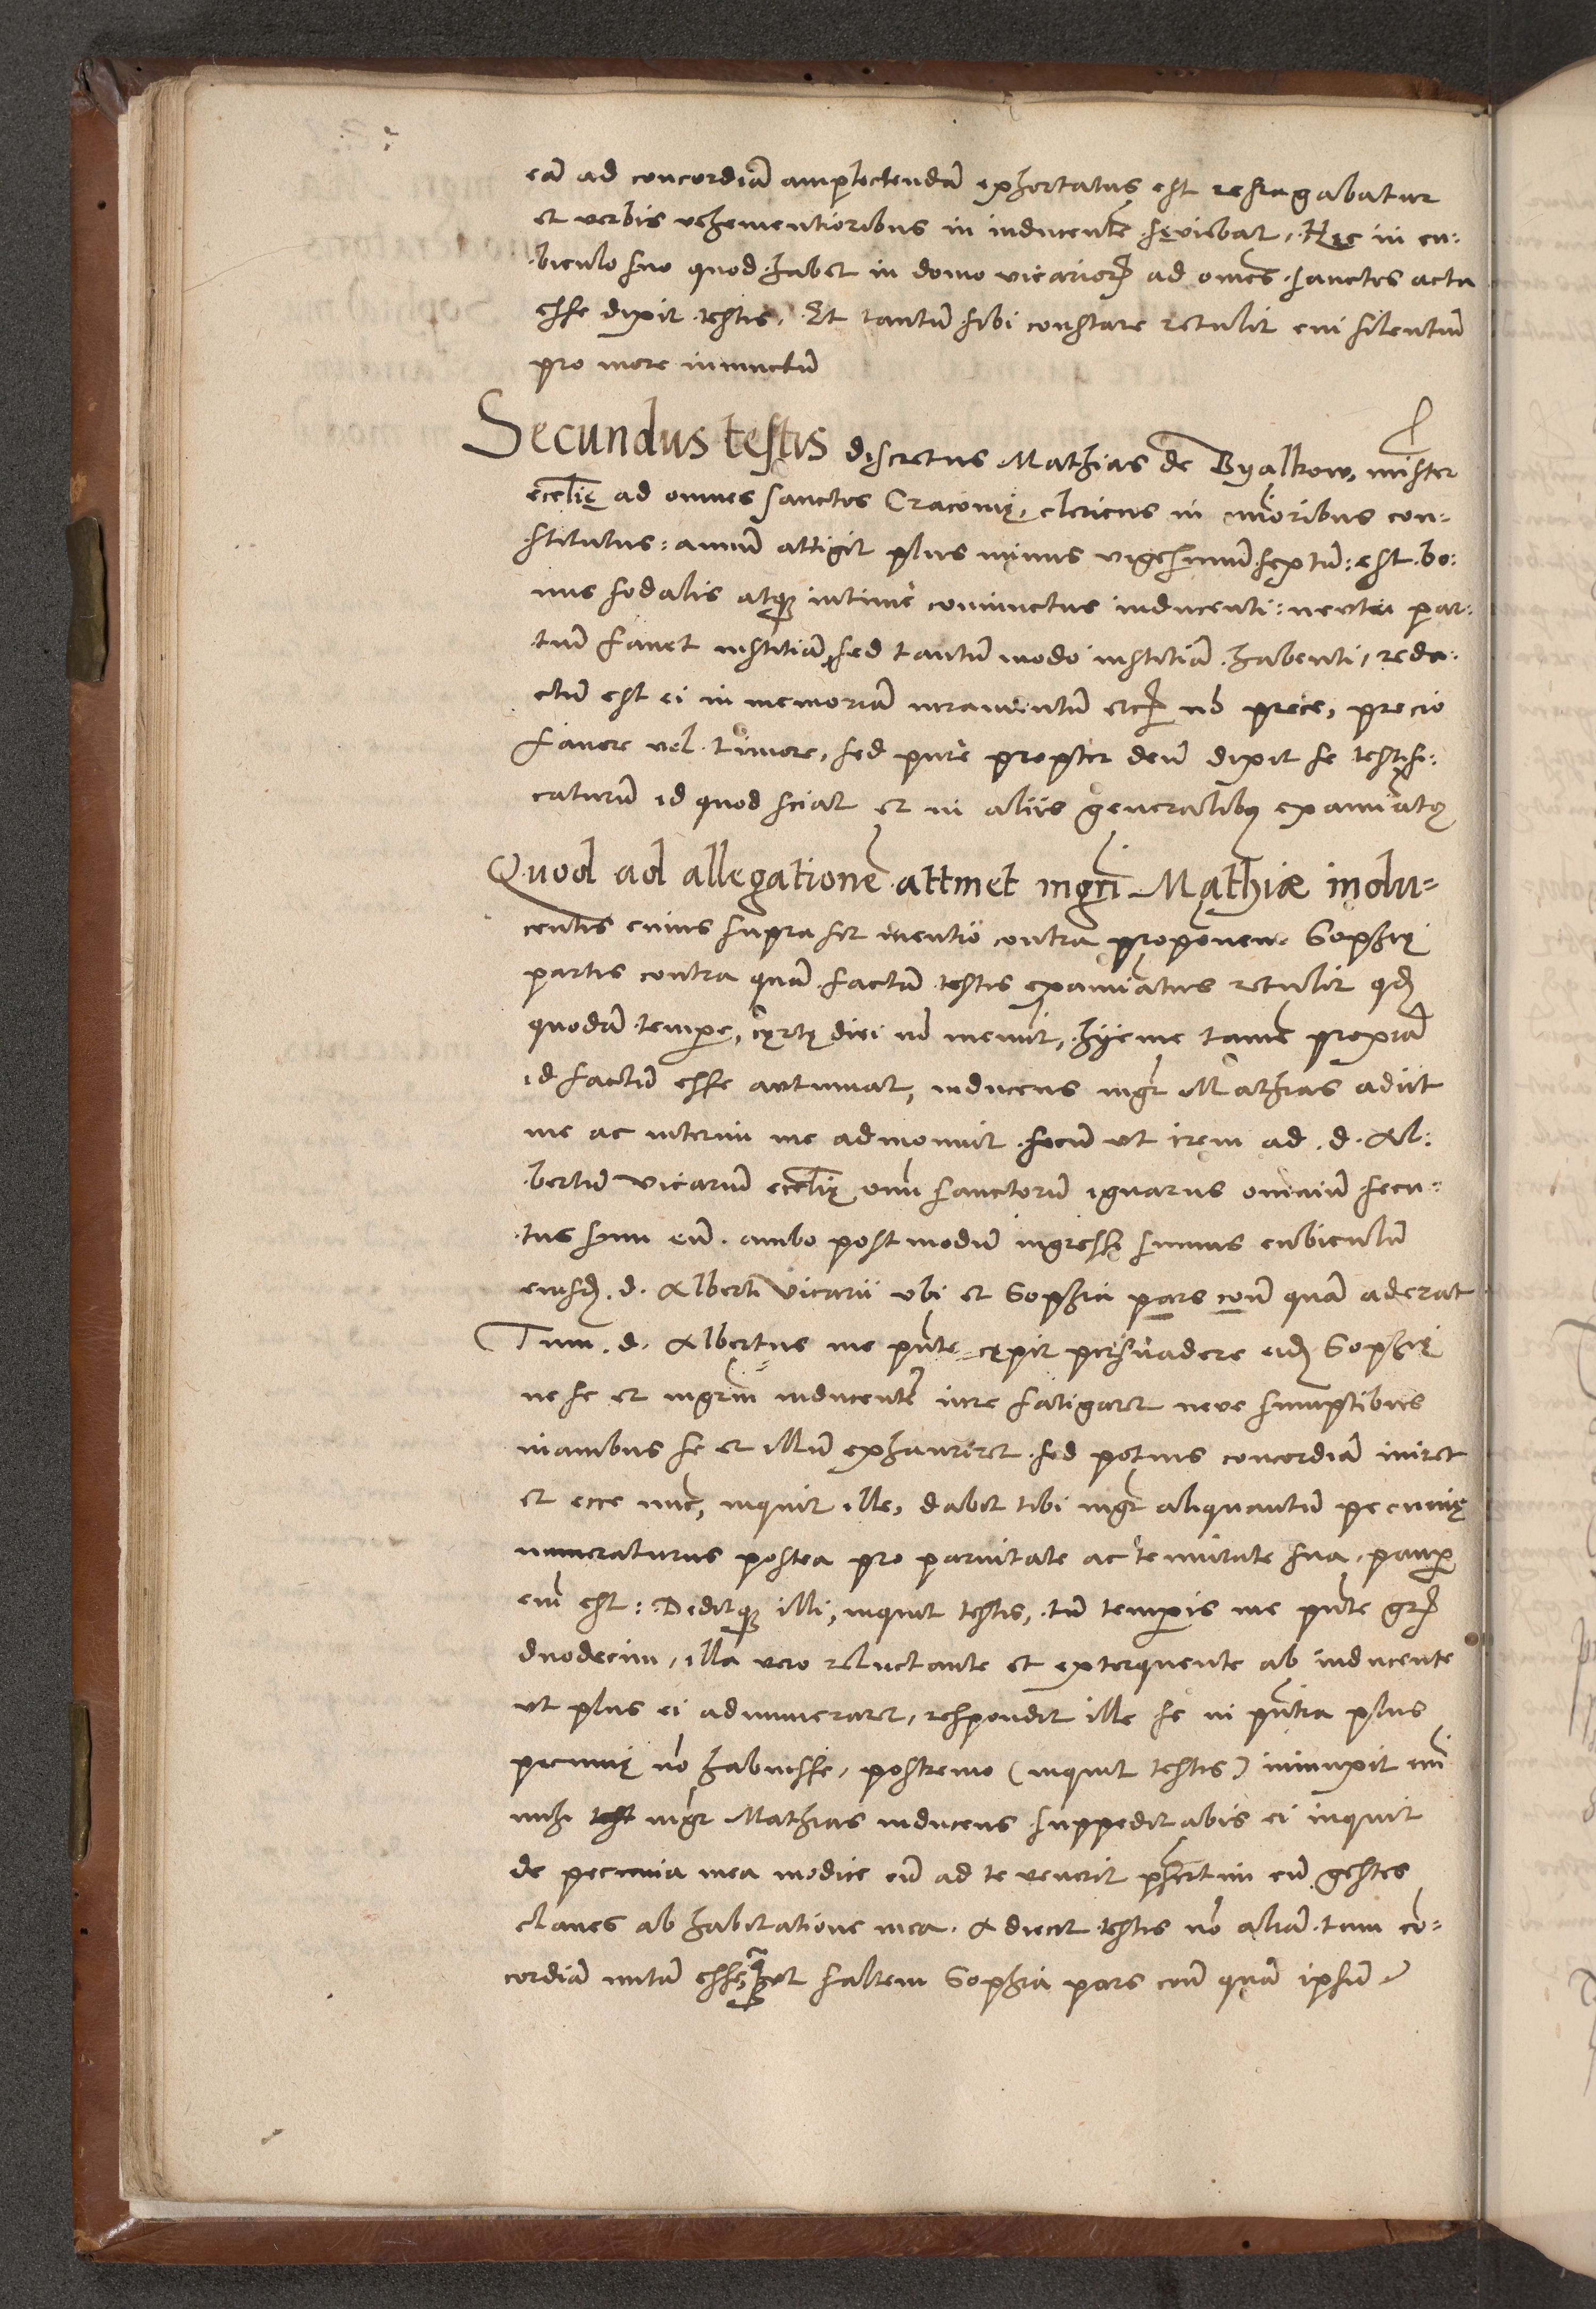 eā ad concordiā amplectendā exhortatus est refragabatur
et verbis vehementioribus in inducentē sęviebat, Hęc in cu:
biculo suo quod habet in domo vicarior̄ ad om̄es sanctos acta
esse dixit testis, Et tantū sibi constare retulit cui silentiū
pro more iniunctū
Secundus testis discretus Mathias de Byalkow, mister
eccłię ad omnes sanctos Cracovię, clericus in mīoribus con:
stitutus: annū attigit plus minus vigesimū sextū: est bo:
nus sodalis atq̨ intime coniunctus inducenti: neutri par:
tiū favet iustitiā sed tantūmodo iustitiā habenti, reda:
ctū est ei in memoriā iuramentū etc̄ nō prece, precio
favore vel timore, sed pure propter deū dixit se testifi:
caturū id quod sciat et in aliis generalibꝰ examīatꝰ
Quod ad allegationē attinet mgr̄i Mathiæ indu=
centis cuius supra fit mentiō contra proponen. Sophię
partis contra quā factā testis examīatus retulit qđ
quodā tempe, cęrtę diei nō meminit, hyeme tamē proxīa
id factū esse autumat, inducens mgr̄ Mathias adiit
me ac interim me admonuit secū ut irem ad .d. Al:
bertū vicariū eccłię om̄ sanctorū ignarus omniū secu:
tus sum eū. ambo postmodū ingressi sumus cubiculū
eiusđ .d. Alberti vicarii ubi et Sophia pars con̄ quā aderat
Tum .d. Albertus me pn̄te cępit persuadere eiđ Sophię
ne se et mgrm̄ inducentē iure fatigaret neve sumptibus
inanibus se et illū exhauriret sed potius concordiā iniret
et ecce nūc, inquit ille, dabit tibi mgr̄ aliquantū pecunię
numeraturus postea pro parvitate ac tenuitate sua, paup̱
em̄ est: Deditq̨ illi, inquit testis, tū temporis me pn̄te gr̄
duodecim, illa vero reluctante et extorquente ab inducente
ut plus ei adnumeraret, respondit ille se in pn̄tia plus
pecunię nō habuisse, postremo (inquit testis) iniunxit em̄
mihi mgr̄ Mathias inducens suppeditabis ei inquit
de pecunia mea modice cū ad te venerit p̄sertim cū gestes
claves ab habitatione mea. Adiecit testis nō aliā tum cō=
cordiā initā esse, q̄ ut saltem Sophia pars con̄ quā ipsū